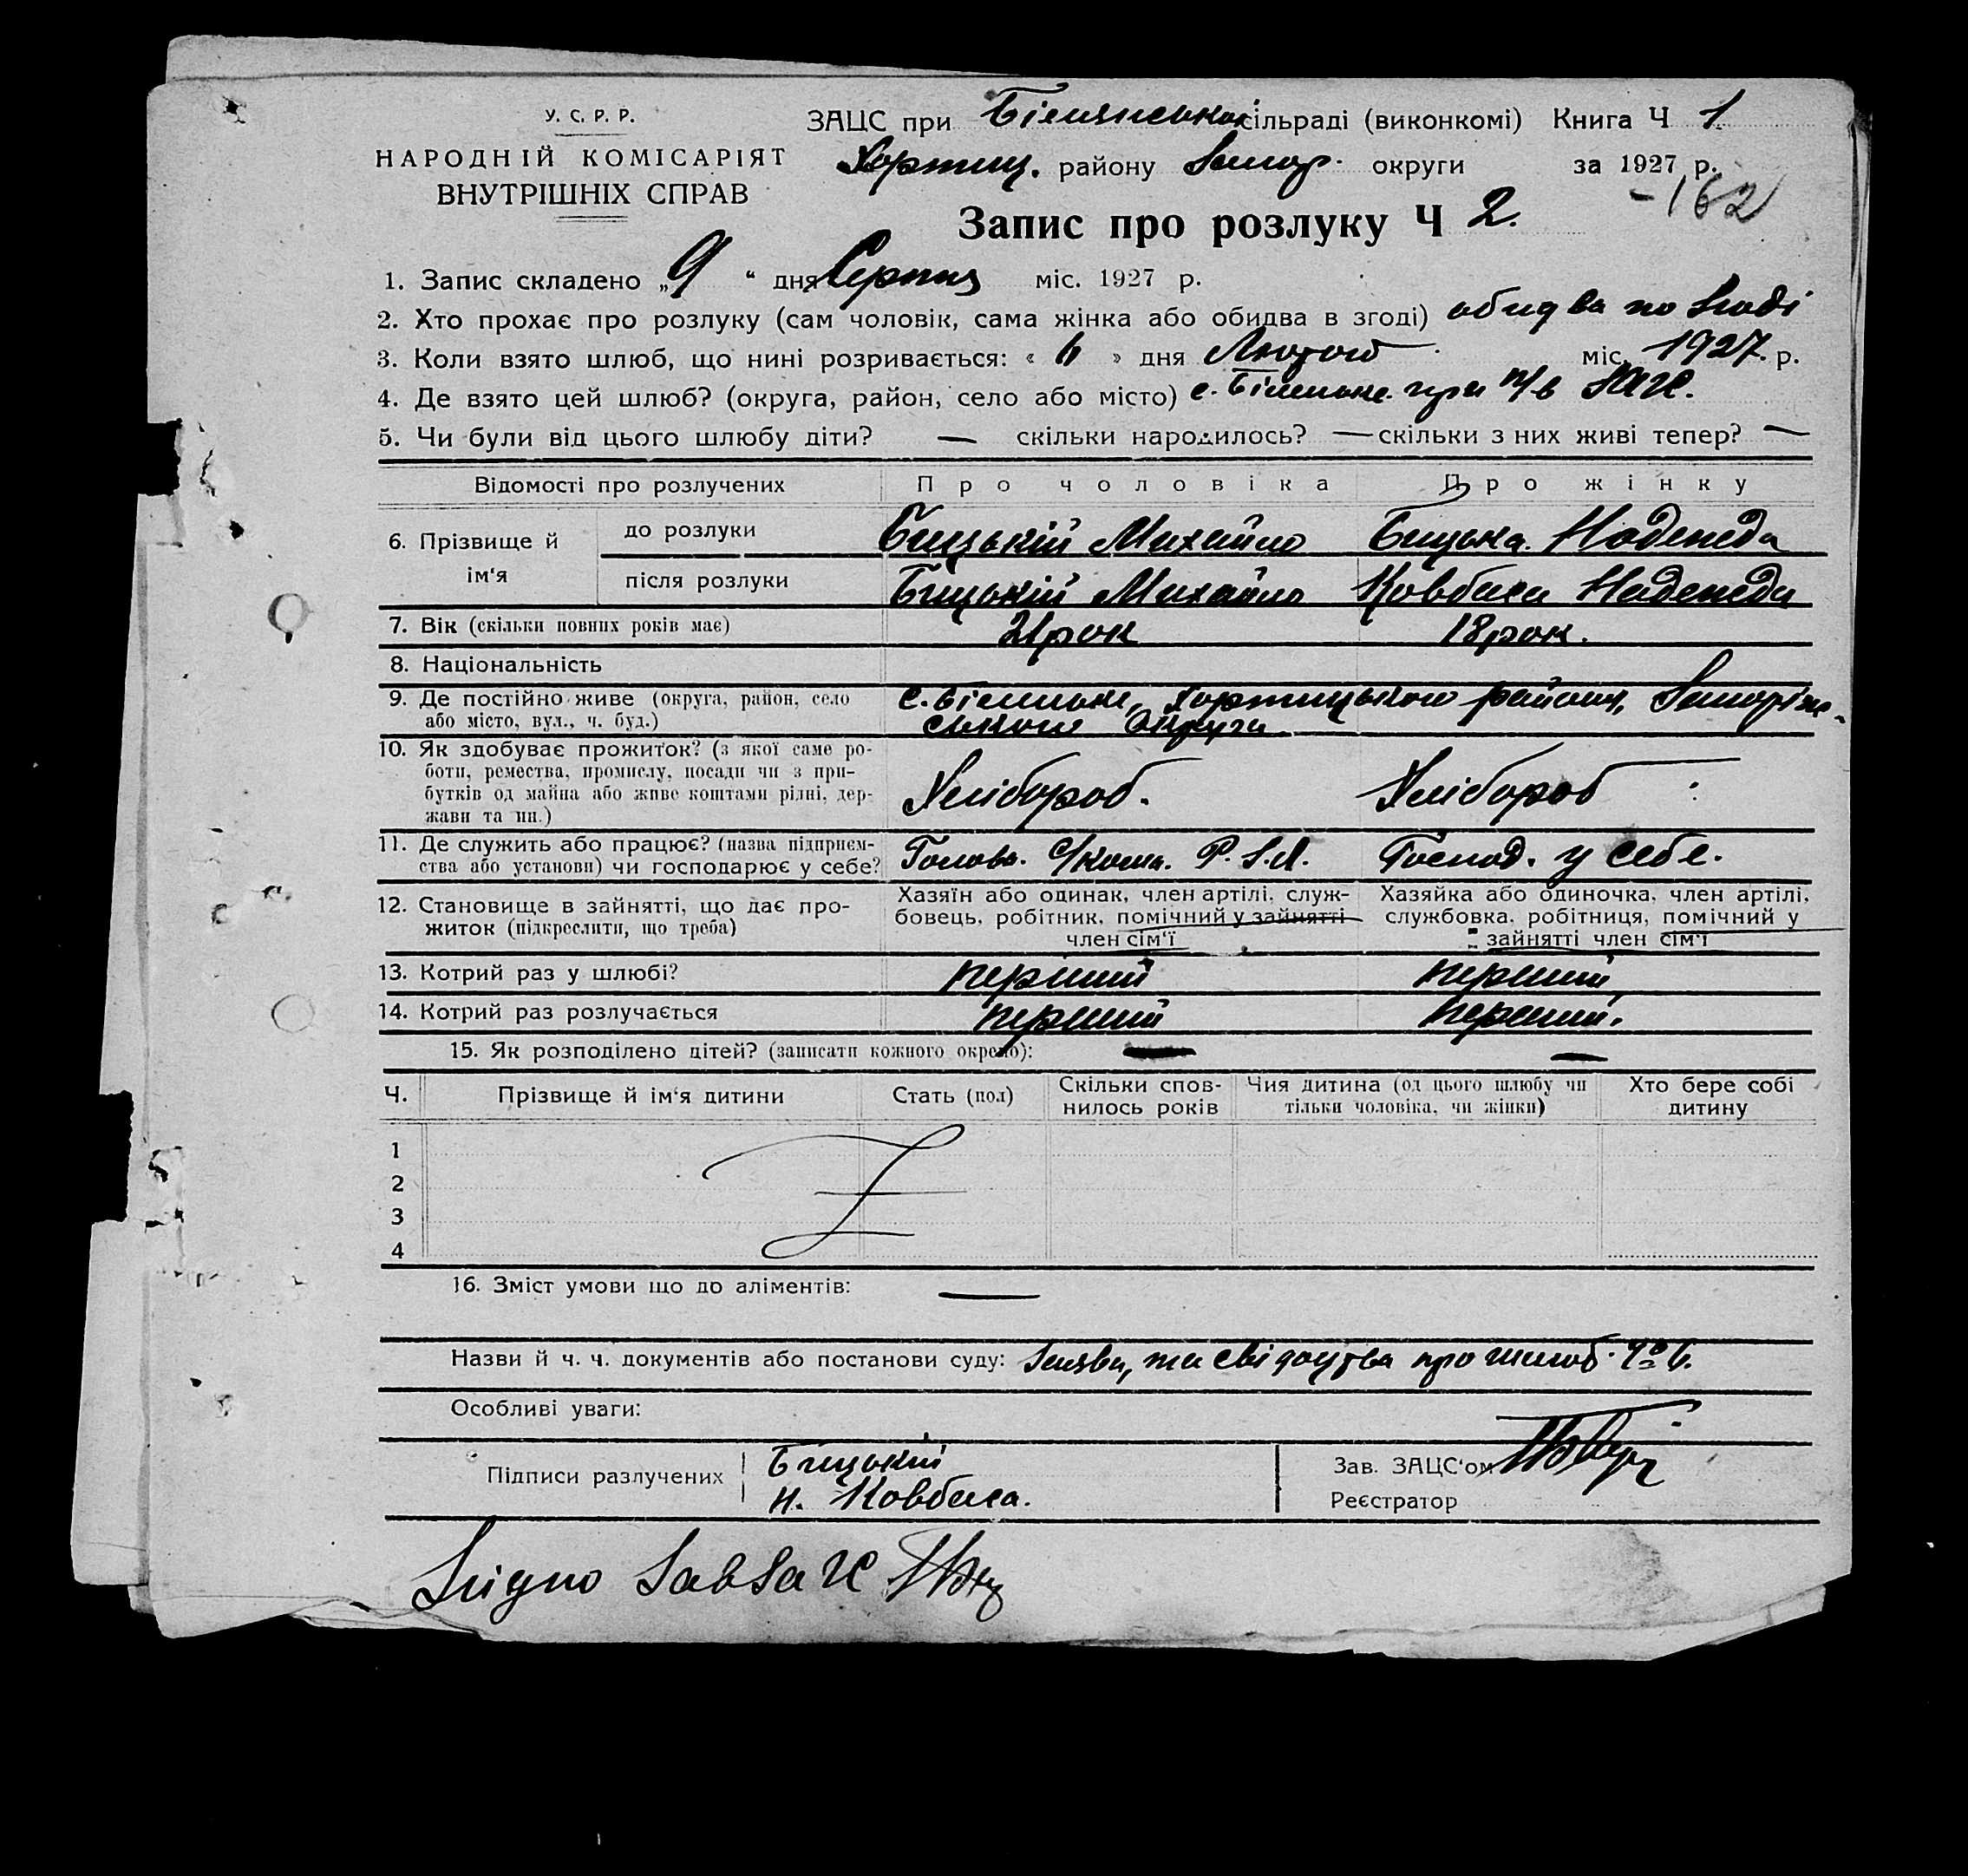 У. С. Р. Р.
НАРОДНІЙ КОМІСАРІЯТ
ВНУТРІШНІХ СПРАВ
ЗАЦС при сільраді (виконкомі) Книга Ч 1
Хортиц. району Запор. округи за 1927 р.
-162
Запис про розлуку Ч 2.
1. Запис складено „9“ дня Серпня міс. 1927 р.
2. Хто прохає про розлуку (сам чоловік, сама жінка або обидва в згоді) обидва по згоді
3. Коли взято шлюб, що нині розривається: « 6 » дня Лютого міс. 1927 р.
4. Де взято цей шлюб? (округа, район, село або місто) с. Біленьке при
5. Чи були від цього шлюбу діти? — скільки народилось? — скільки з них живі тепер? —
Відомості про розлучених Про чоловіка Про жінку
6. Прізвище й ім‘я
до розлуки Бицький Михайло Бицька Надежда
після розлуки Бицький Михайло Ковбаса Надежда
7. Вік (скільки повних років має) 21 рок 18 рок.
8. Національність
9. Де постійно живе (округа, район, село с. Біленьке, Хортицького району, Запоріж-
або місто, вул., ч. буд.) ського Округа
10. Як здобуває прожиток? (з якої саме ро-
боти, ремества, промислу, посади чи з при-
бутків од майна або живе коштами рідні, дер-
жави та ин.)
Хлібороб. Хлібороб
11. Де служить або працює? (назва підприєм-
ства або установи) чи господарює у себе?
Голова. Господ. у себе.
12. Становище в зайнятті, що дає про-
житок (підкреслити, що треба)
Хазяїн або одинак, член артілі, служ-
бовець, робітник, помічний у зайнятті
член сім‘ї
Хазяйка або одиночка, член артілі,
службовка, робітниця, помічний у
зайнятті член сім‘ї
13. Котрий раз у шлюбі? перший перший
14. Котрий раз розлучається перший перший.
15. Як розподілено дітей? (записати кожного окремо): — —
Ч. Прізвище й ім‘я дитини Стать (пол) Скільки спов-нилось років Чия дитина (од цього шлюбу чи тільки чоловіка, чи жінки) Хто бере собі дитину
1
2
3
4
16. Зміст умови що до аліментів: —
Назви й ч. ч. документів або постанови суду: Заява, та свідоцтва про шлюб. № 6.
Особливі уваги:
Підписи разлучених Бицький
Н. Ковбаса.
Зав. ЗАЦС‘ом
Реєстратор
Згідно